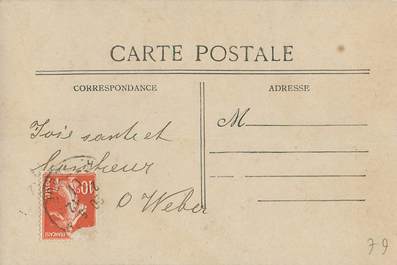 CARTE POSTALE
CORRESPONDANCE
ADRESSE
M
Joie santé et
bonheur
O Weber
10
79